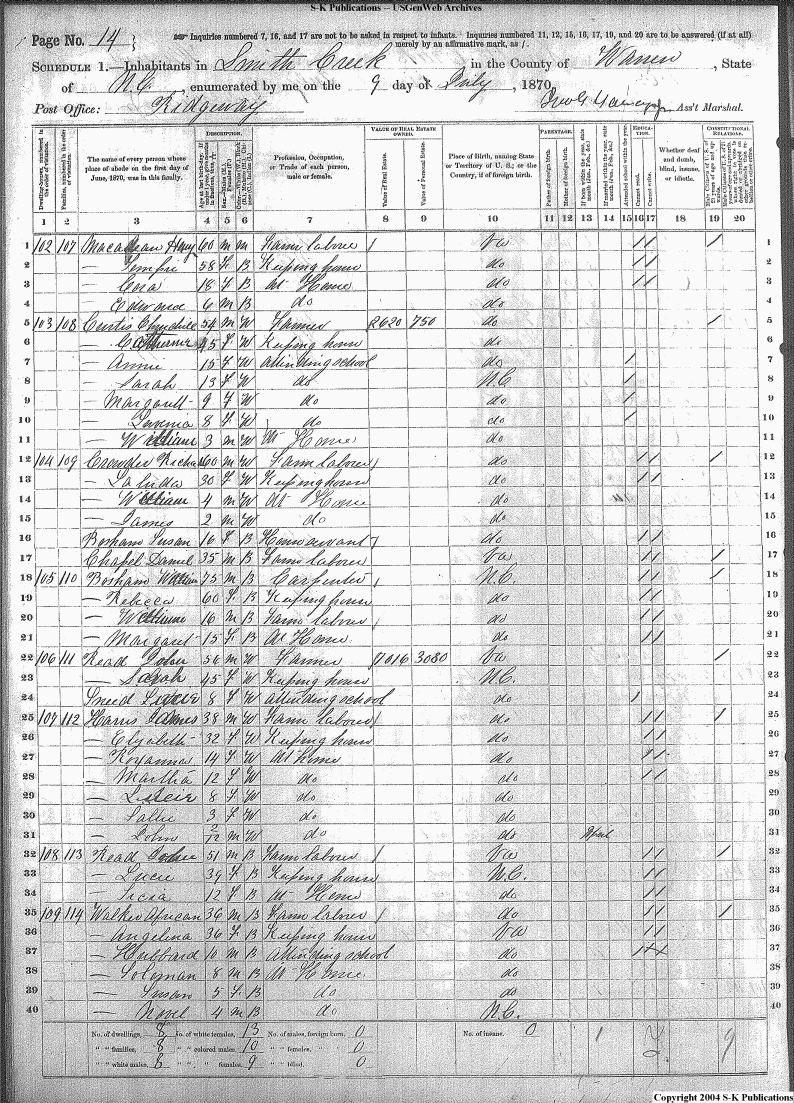 S-K Publications -- USGenWeb Archives
Page No. 14
Inquiries numbered 7, 16, and 17 are not to be asked in respect to infants. Inquiries numbered 11, 12, 15, 16, 17, 19, and 20 are to be answered (if at all) merely by an affirmative mark, as /.
Schedule 1.—Inhabitants in Smith Creek, in the County of Warren, State
of N.C., enumerated by me on the 9 day of July, 1870.
Post Office: Ridgeway Ass't Marshal.
Dwelling-houses, numbered in the order of visitation.
Families, numbered in the order of visitation.
The name of every person whose place of abode on the first day of June, 1870, was in this family.
Description.
Profession, Occupation, or Trade of each person, male or female.
Value of Real Estate Owned
Value of Real Estate.
Value of Personal Estate.
Place of Birth, naming State or Territory of U. S.; or the Country, if of foreign birth.
Parentage.
Father of foreign birth.
Mother of foreign birth.
Attended school within the year.
Education.
Cannot read.
Cannot write.
Whether deaf and dumb, blind, insane, or idiotic.
Constitutional Relations.
1 2 3 4 5 6 7 8 9 10 11 12 13 14 15 16 17 18 19 20
1 102 107 60 m m Farm labour / Va / / / 1
2 — Tempie 58 F B Keeping house do / / 2
3 — Cora 18 F B At Home do / / 3
4 — Edward 6 m B do do 4
5 103 108 Curtis 54 m W Farmer 2620 750 do / 5
6 — Catharine 45 F W Keeping house do 6
7 — Annie 15 F W attending school do / 7
8 — Sarah 13 F W do N.C / 8
9 — Margaret 9 F W do do / 9
10 — Luvenia 8 F W do do / 10
11 — William 3 m W At Home do 11
12 104 109 Crowder Richard 60 m W Farm labour / do / / / 12
13 — Salinda 30 F W Keeping house do / / 13
14 — William 4 m W At Home do 14
15 — James 2 m W do do 15
16 Susan 16 F B / do / / 16
17 Chapel Daniel 35 m B Farm labour Va / / / 17
18 105 110 William 75 m B Carpenter / N.C. / / / 18
19 — Rebecca 60 F B Keeping house do / / 19
20 — William 16 m B Farm labour / do / / 20
21 — Margaret 15 F B At Home do / / 21
22 106 111 Read John 56 m W Farmer 7016 3080 Va / 22
23 — Sarah 45 F W Keeping house N.C. 23
24 Sneed 8 F W attending school do / 24
25 107 112 Harris James 38 m W Farm labour / do / / / 25
26 — Elyabeth 32 F W Keeping house do / / 26
27 — Roxanna 14 F W At home do / / 27
28 — Martha 12 F W do do / / 28
29 — 8 F W do do 29
30 — Sallie 3 F W do do 30
31 — John 2/12 m W do do April 31
32 108 113 Read John 51 m B Farm labour / Va / / / 32
33 — Lucie 39 F B Keeping house N.C. / / 33
34 — 12 F B At Home do / / 34
35 109 114 Walker African 36 m B Farm labour / do / / / 35
36 — Angelina 36 F B Keeping house Va / / 36
37 — Hubbard 10 m B attending school do 37
38 — Soloman 8 m B At Home do 38
39 — Susan 5 F B do do 39
40 — Novel 4 m B do N.C. 40
No. of dwellings, 8 No. of white females, 13 No. of males, foreign born, 0 No. of insane, 0 1 9
" " families, 8 " " colored males, 10 " " females, " " 0
" " white males, 8 " " " females, 9 " " blind, 0
Copyright 2004 S-K Publications